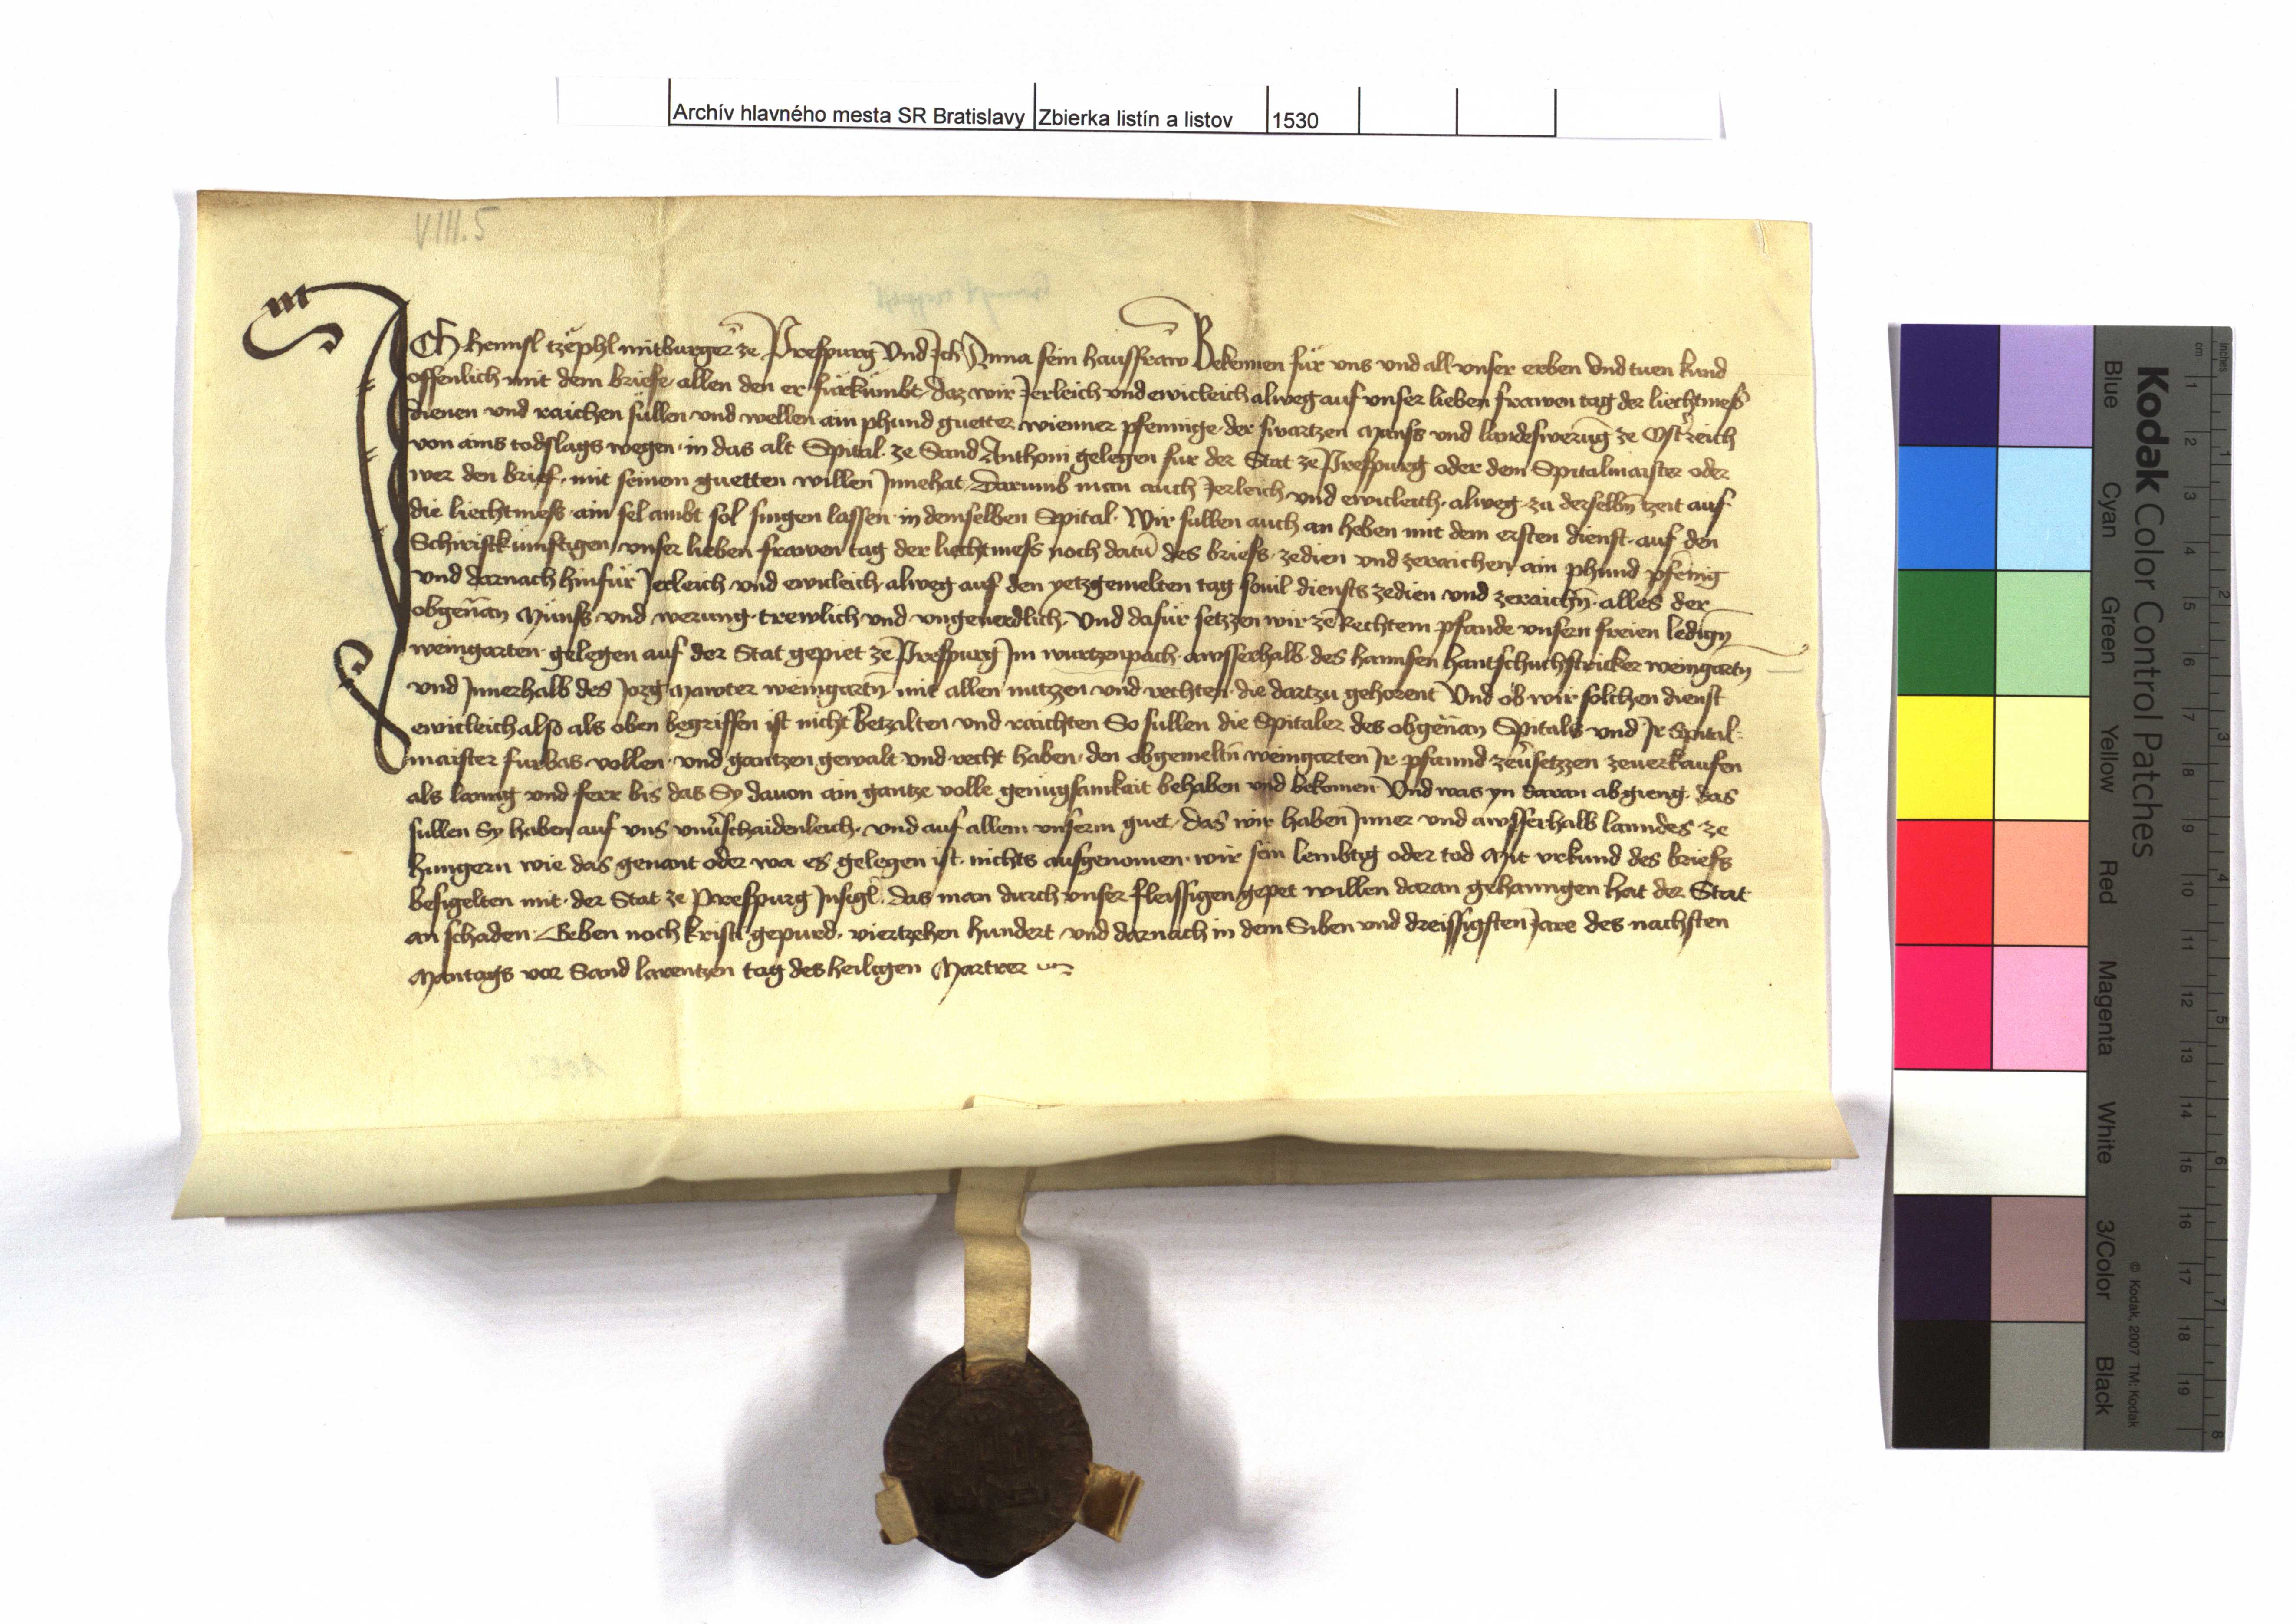 Archív hlavného mesta SR Bratislavy Zbierka listín a listov 1530
VIII.5
ICh hennsl tzëphl mitburger ze Prespurg Und Ich Anna sein hausfraw Bekennen für uns und all unser erben Und tuen kund
offenlich mit dem briefe allen den er fürkümbt, daz wir Jerleich und ewicleich alweg auf unser lieben frawen tag der liechtmess
dienen und raichen süllen und wellen ain phund guetter wienner pfennige der swartzen Munss und landeswerūg ze Ostʼreich
von ains todslags wegen in das alt Spital ze Sand Anthoni gelegen fur der Stat ze Prespurg oder dem Spitalmaister oder
wer den brief mit seinem guetten willen Innehat, Darumb man auch Jerleich und ewicleich alweg zu derselbn̄ tzeit auf
die liechtmess ain sel ambt sol singen lassen in demselben Spital. Wir sullen auch an heben mit dem ersten dienst auf den
Schiristkünftigen unser lieben frawen tag der liechtmess noch datū des briefs zedien und zeraichen ain phund pfēnig
und darnach hinfür Jerleich und ewicleich alweg auf den yetzgemelten tag souil diensts zedien und zeraichn̄ alles der
obgen̄an Münss und werung trewlich und ungeuerdlich Und dafür setzzen wir ze Rechtem pfande unsern freien ledign
weingarten gelegen auf der Stat gepiet ze Prespurg Im wurtzenpach awsserhalb des hannsen hantschuchstricker weingartn
und Innerhalb des Jorg Mawter weingartn mit allen nutzzen und rechten die dartzu gehorent Und ob wir solchen dienst
ewicleich also als oben begriffen ist nicht betzalten und raichten So sullen die Spitaler des obgen̄an Spitals und Ir Spital:
maister furbas vollen und gantzen gewalt und recht haben den obgemeltn̄ weingarten Ir pfannd zeuʼsetzzen zeuerkaufen
als lanng und ferr bis das Sy dauon ain gantze volle genugsamkait behaben und bekomen Und was yn daran abgieng das
sullen Sy haben auf uns unuʼschaidenleich und auf allem unserm guet das wir haben Inner und awsserhalb lanndes ze
hungern wie das genant oder wa es gelegen ist nichts ausgenomen wir sein lembtig oder tod Mit urkund des briefs
besigelten mit der Stat ze Prespurg Insigl, das man durch unser fleissigen gepet willen daran gehanngen hat der Stat
an schaden Geben noch kristi gepurd viertzehen hundert und darnach in dem Siben und dreissigsten Jare des nachsten
Mantags vor Sand larentzen tag des heiligen Martrer
Kodak Color Control Patches
Blue Cyan Green Yellow Red Magenta White 3/Color Black
© Kodak, 2007 TM: Kodak
inches 1 2 3 4 5 6 7 8
cm 1 2 3 4 5 6 7 8 9 10 11 12 13 14 15 16 17 18 19